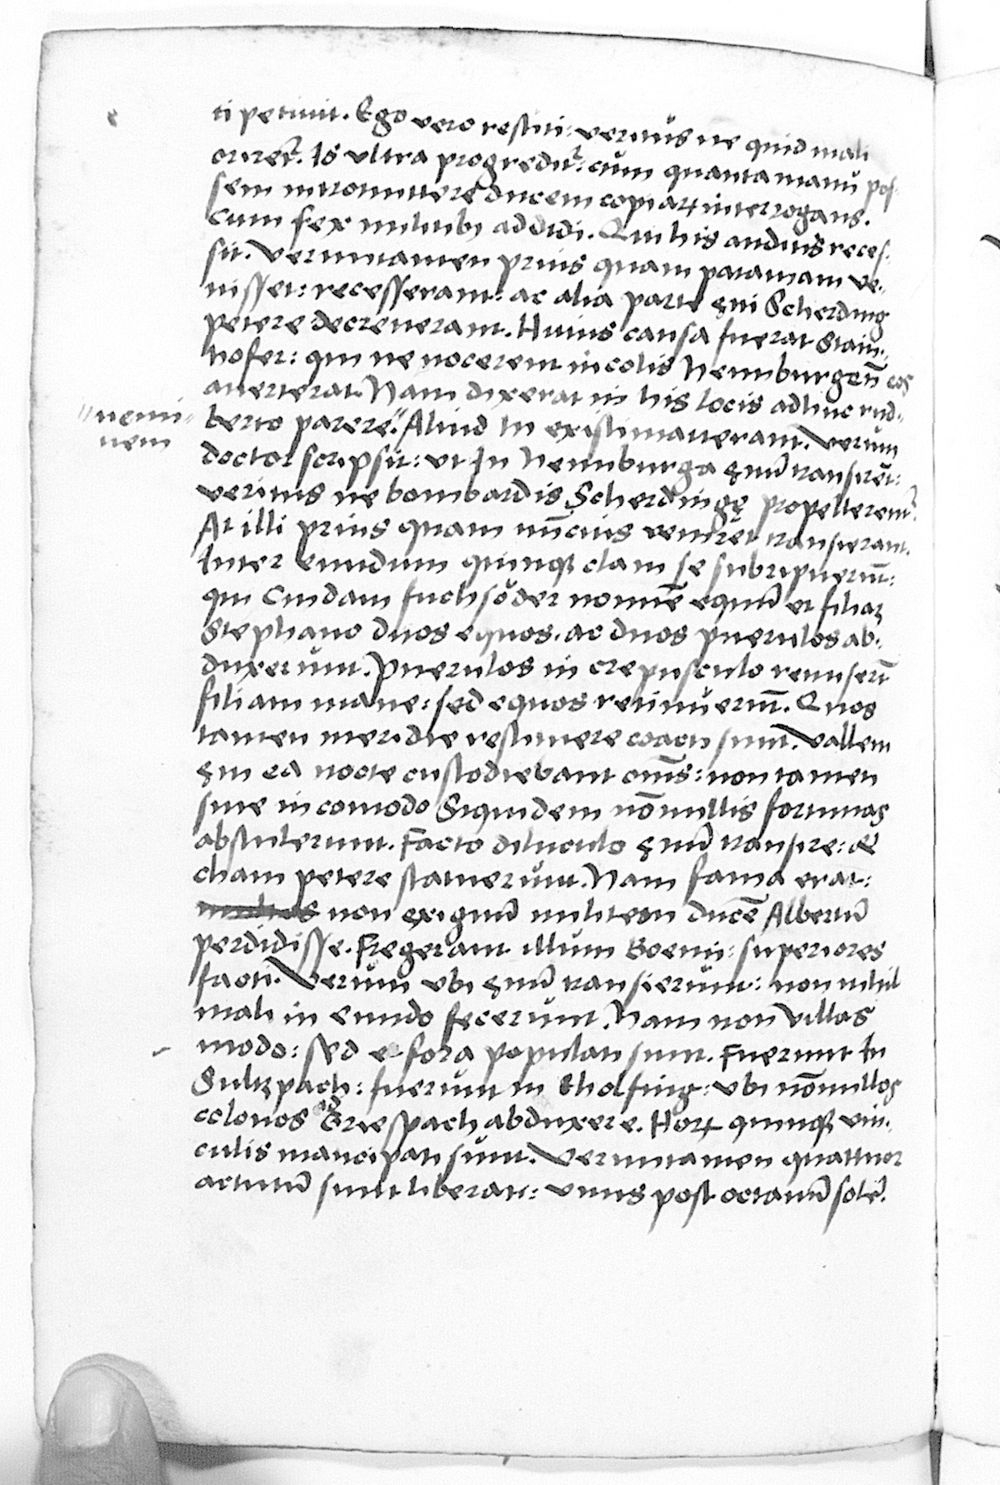 ti petiuit. Ego vero restiti: veritus ne quid mali
oriret᷑. Is ultra progredit᷑: cum quanta manu pos-
sem intromittere ducem copiaꝝ interrogans.
Cum sex militibꝫ addidi. Qui his auditis reces-
sit. Veruntamen prius quam patauiam ve-
nisset: recesserant: ac alia parte Eni Scherding
petere decreuerant. Huius causa fuerat Stain-
hofer: qui ne nocerent incolis Neunburgeñ eos
auerterat. Nam dixerat in his locis adhuc rud-
berto parere." Aliud tn̄ existimauerant. Verum
"nemi-
nem
doctor scripsit: ut in Neunburga Enū transirēt:
veritus ne bombardis Scherdingę propellerent᷑.
At illi prius quam nūcius veniret transierant.
Inter eundum quinqꝫ clam se subripuerūt:
qui Cuidam fuchsöder nomine equū et filiaꝫ
Stephano duos equos. ac duos puerulos ab-
duxerunt. Puerulos in crepusculo remiserūt
filiam mane: sed equos retinuerūt. Quos
tamen meridie restituere coacti sunt. Vallem
Eni ea nocte custodiebant om̄s: non tamen
sine incomodo Siquidem nōnullis fortunas
abstulerunt. Facto diluculo Enū transire: &
cham petere statuerunt. Nam fama erat:
non exiguū militem ducē Albertū
perdidisse. Fregerant illum Boemi: superiores
facti. Verum ubi Enū transierunt: non nihil
mali in eundo fecerunt. Nam non villas
modo: sed et fora populati sunt. Fuerunt in
Sultzpach: fuerunt in tholfing: ubi nōnullos
colonos ad Griespach abduxere. Hoꝝ quinqꝫ vin-
culis mancipati sunt. Veruntamen quattuor
actutū sunt liberati: unus post octauū solē.